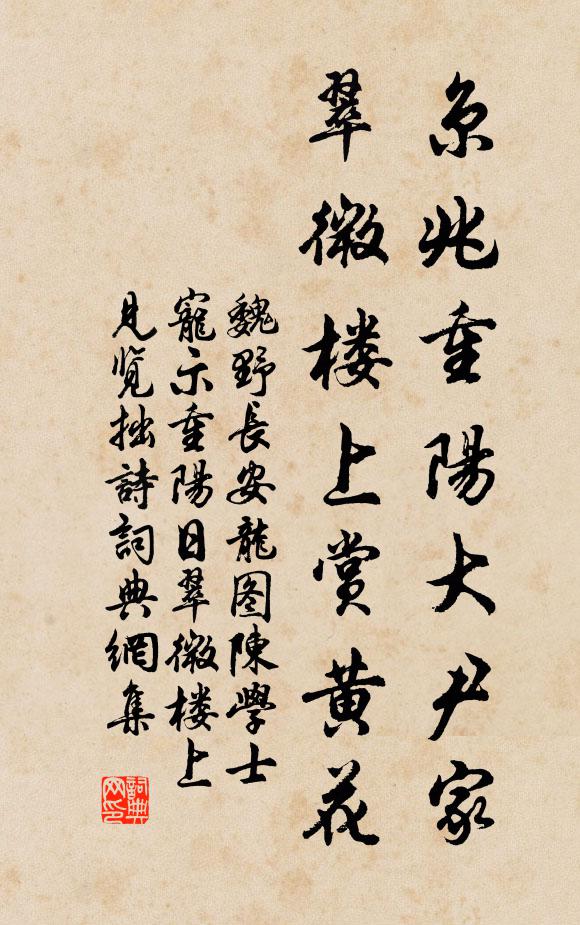 京兆重陽大尹家
翠微楼上賞黄花
魏野長安龍图陳學士
寵示重陽日翠微楼上
見览拙詩詞典網集
詞典网印